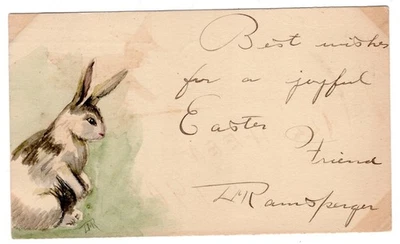 Best wishes
for a joyful
Easter
Friend
Ramsperger